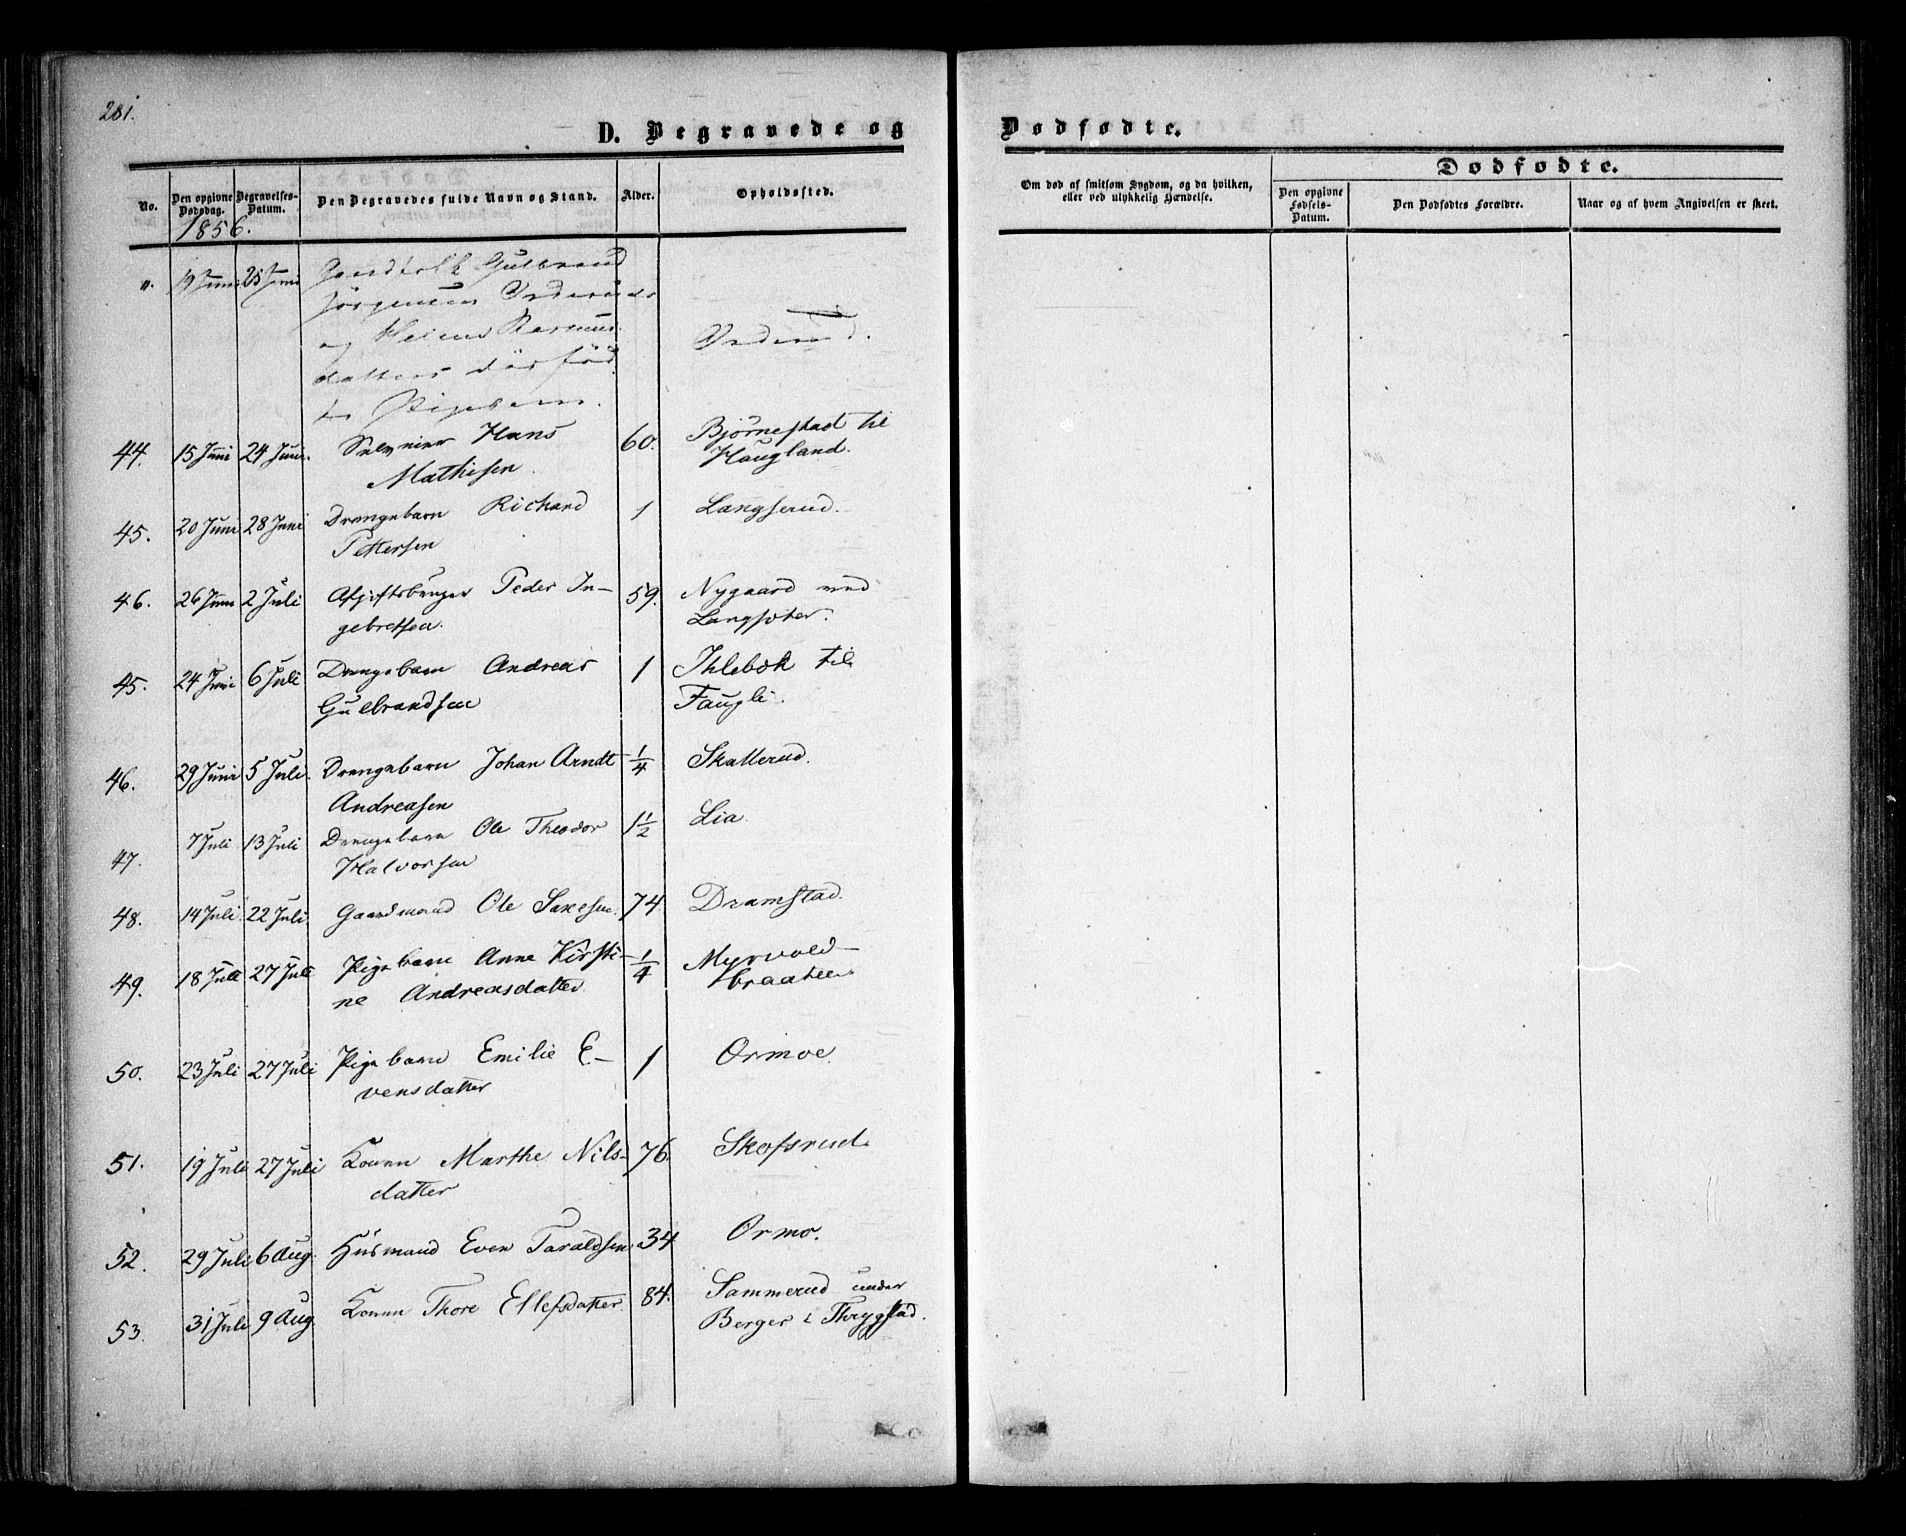 281.
D. Begravede og
Dødfødte.
No.
Den opgivne Dødsdag.
Begravelses-Datum.
Den Begravedes fulde Navn og Stand.
Alder.
Opholdssted.
Om død af smitsom Sygdom, og da hvilken,
eller ved ulykkelig Hændelse.
Dødfødte.
Den opgivne Fødsels-Datum.
Den Dødfødtes Forældre.
Naar og af hvem Angivelsen er skeet.
1856.
". 19 Juni 25 Juni Gulbrand
Jørgensens
og
datters død fød
te Pigebarn.
44. 15 Juni 24 Juni Hans 60. Bjørnestad til
Mathisen. Haugland.
45. 20 Juni 28 Juni Drengebarn Richard 1 Langserud.
Pettersen
46. 26 Juni 2 Juli Afgiftsbruger Peder In- 59. Nygaard ved
gebretsen. Langsæter.
45. 24 Juni 6 Juli Drengebarn Andreas 1 Ihlebæk til
Gulbrandsen Faugli.
46. 29 Juni 5 Juli. Drengebarn Johan Arndt 1/4 Skallerud.
Andreasen
47. 7 Juli 13 Juli Drengebarn Ole Theodor 1 1/2 Lia.
Halvorsen
48. 14 Juli 22 Juli Gaardmand Ole Saxesen. 74. Dramstad.
49. 18 Juli 27 Juli Pigebarn Anne Kirsti- 1/4 Myrvold-
ne Andreasdatter. braaten
50. 23 Juli 27 Juli Pigebarn Emilie E- 1 Ormoe.
vensdatter
51. 19 Juli 27 Juli Konen Marthe Nils- 76. Skofsrud.
datter
52. 29 Juli 6 Aug. Husmand Even Taraldsen. 34 Ormo.
53. 31 Juli 9 Aug. Konen Thore Ellefsdatter. 84. Sammerud under
Berger i Thrygstad.